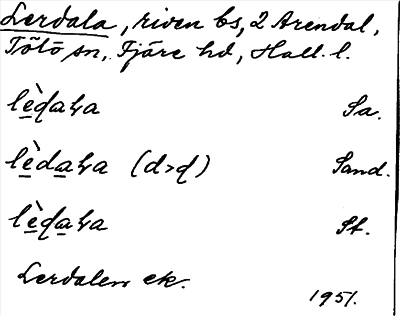 Lerdala, riven bs, 2 Arendal,
Tölö sn, Fjäre hd, Hall. l.
lèɖaꞎa Sa.
lèdaꞎa (d>ɖ) Sand.
lèɖaꞎa St.
Lerdalen ek.
1951.